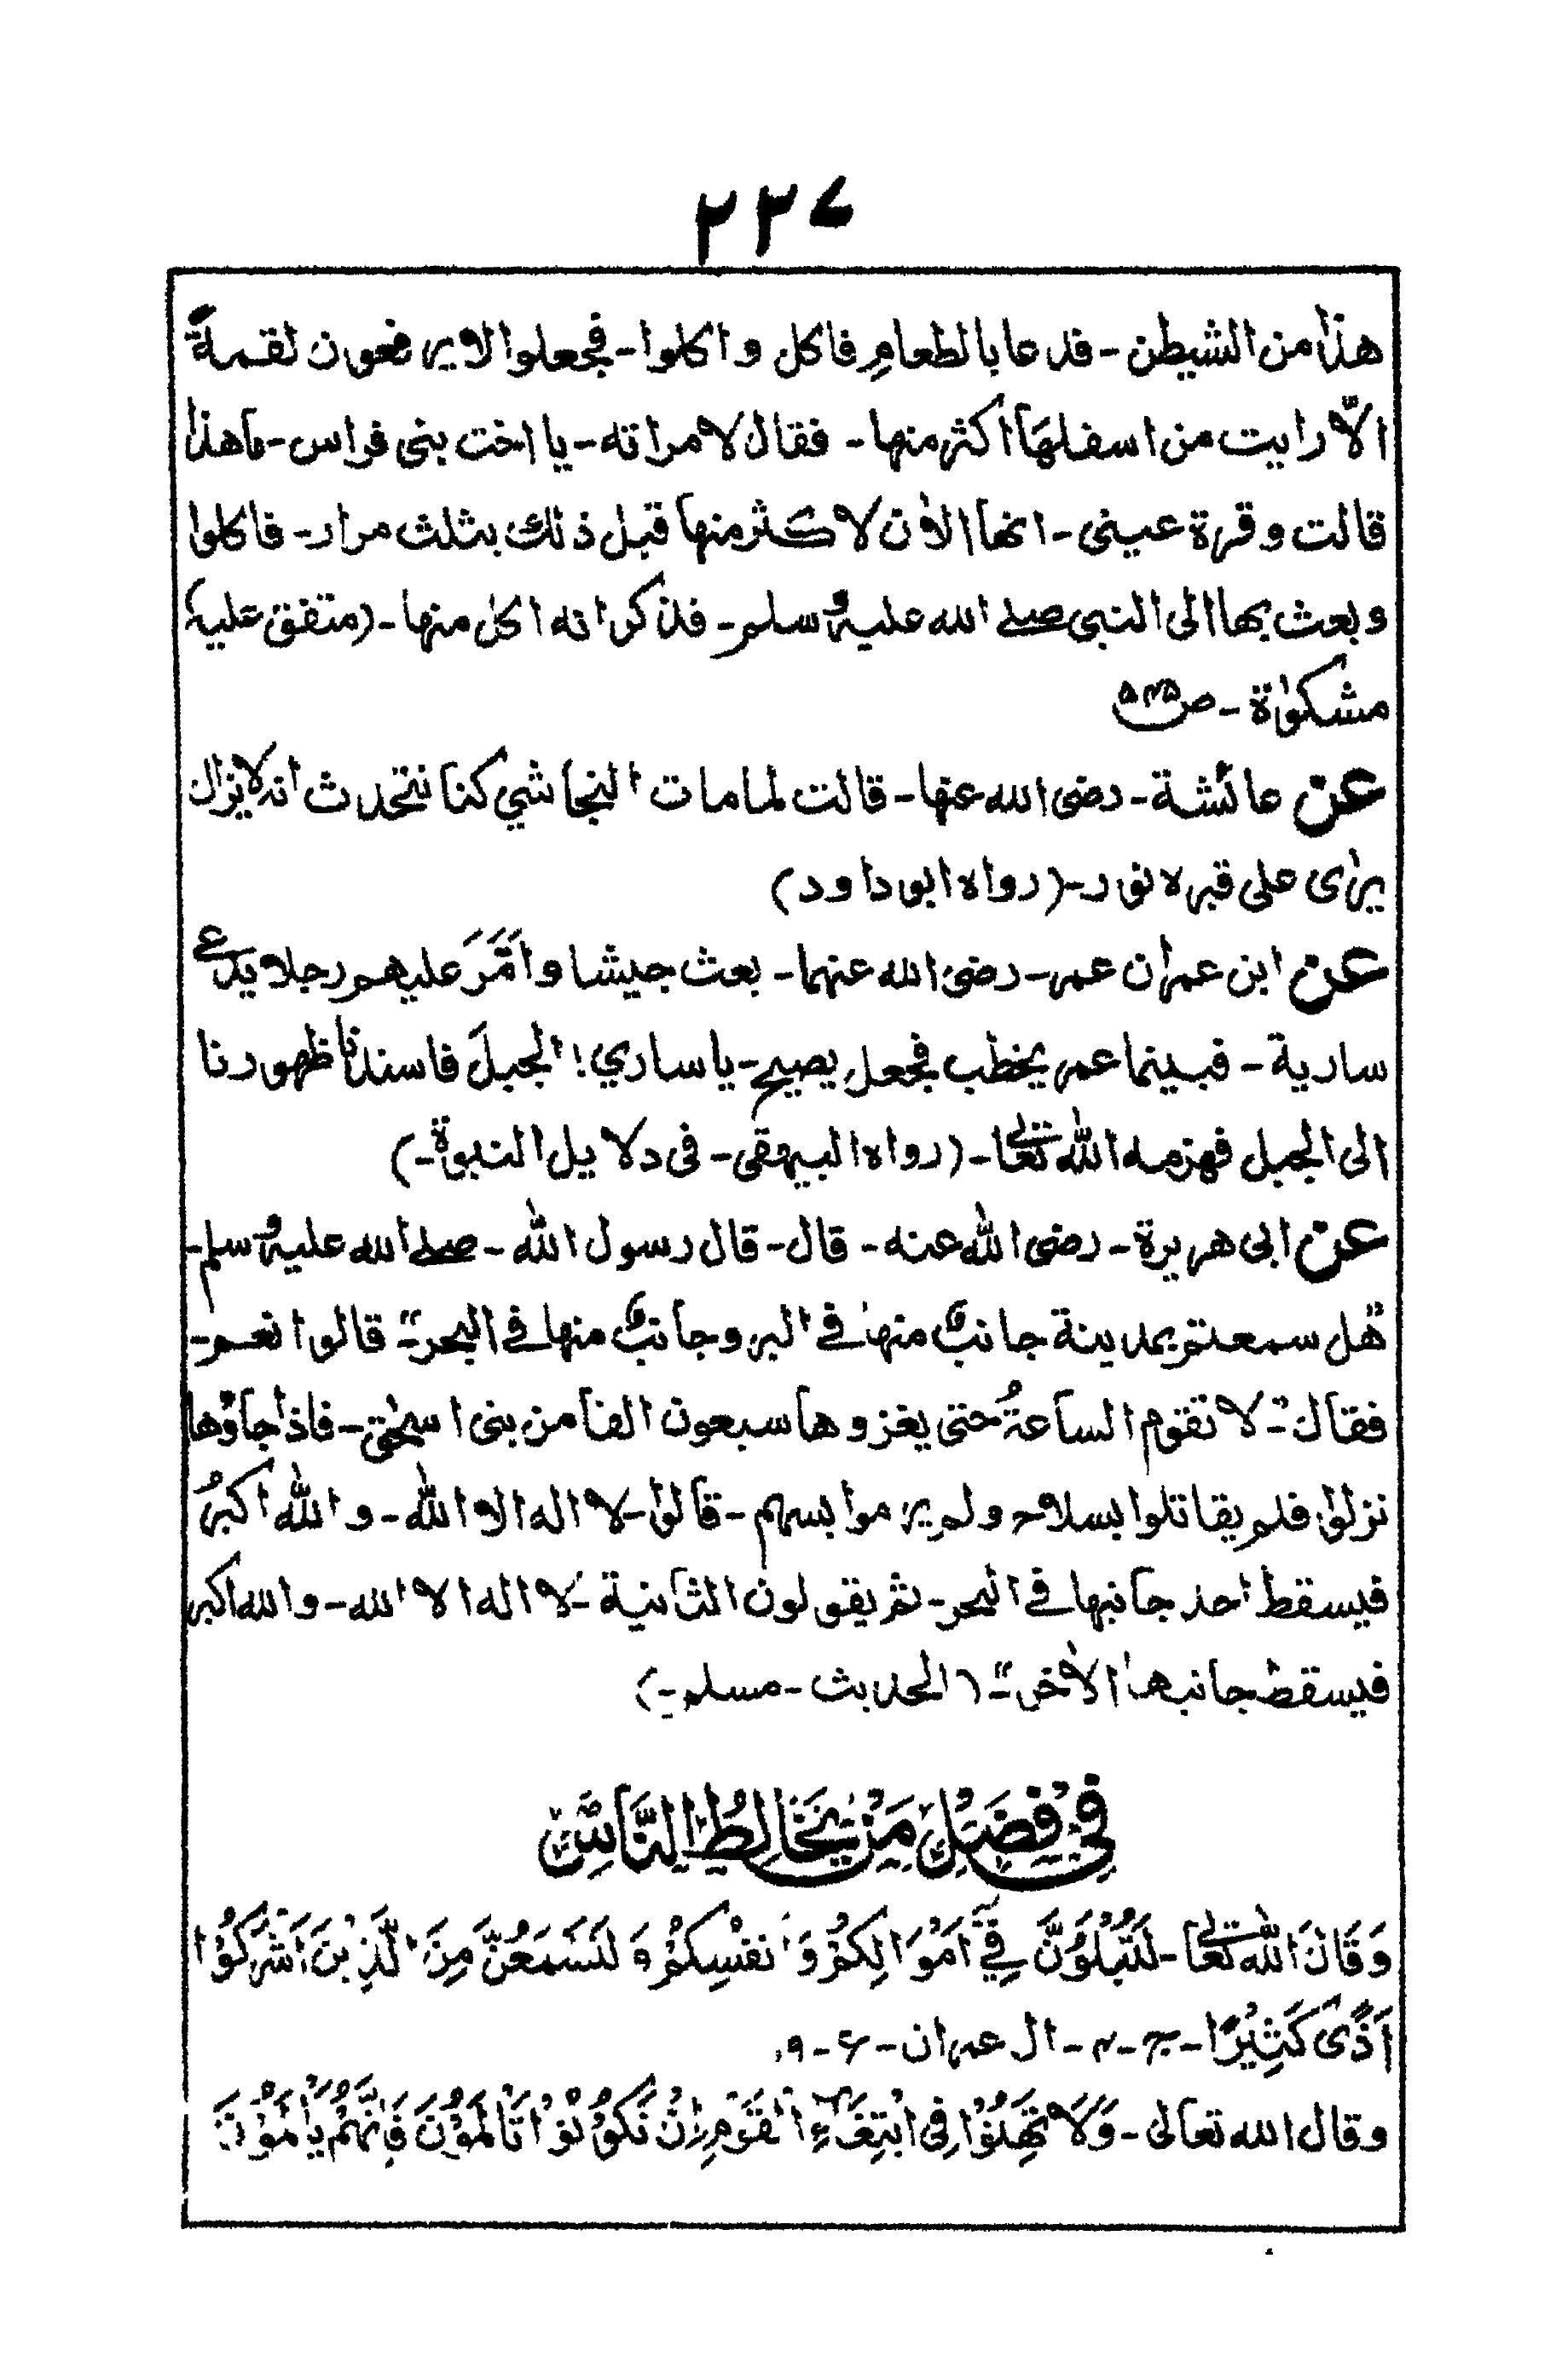 ۲۲۷
هذا من الشیطن - فدعا بالطعامِ فاکل واکلوا - فجعلوا لا یرفعون لقمةً
الّا رایت من اسفلها اکثر منها - فقال لامراته - یا اخت بنی فراس - ما هذا
قالت وقرة عینی - انها الاٰن لاکثر منها قبل ذٰلك بثلث مرار - فاکلوا
وبعث بها الی النبی صلے الله علیه وسلم - فذکر انه اکل منها - (متفق علیه)
مشکوٰة - ص ۵۴۵
عن عائشة - رضی الله عنها - قالت لما مات النجاشي کنا نتحدث انه لا یزال
یرٰی علی قبره نور - (رواه ابو داود)
عن ابن عمر ان عمر - رضی الله عنهما - بعث جیشا واَمَّرَ علیهم رجلا یدعے
ساریة - فبینما عمر یخطب فجعل یصیح - یا ساري! الجبلَ فاسندنا ظهورنا
الی الجبل فهزمه الله تعالٰی - (رواه البیهقی - فی دلایل النبوة -)
عن ابی هریرة - رضی الله عنه - قال - قال رسول الله - صلے الله علیه وسلم -
"هل سمعتم بمدینة جانبٌ منها فے البر وجانبٌ منها فے البحر" - قالوا نعم -
فقال" - لا تقوم الساعةُ حتی یغزوها سبعون الفا من بنی اسحٰق - فاذا جاؤها
نزلوا فلم یقاتلوا بسلاح ولم یرموا بسهم - قالوا - لا اله الا الله - والله اکبرُ
فیسقط احد جانبها فے البحر - ثم یقولون الثانیة - لا اله الا الله - والله اکبر
فیسقط جانبها الاٰخر" - (الحدیث - مسلم -)
فِیْ فَضْلِ مَنْ یُّخَالِطُ النَّاسَ
وَقَالَ الله تعالٰی - لَتُبْلَوُنَّ فِیْٓ اَمْوَالِکُمْ وَاَنْفُسِکُمْ وَلَتَسْمَعُنَّ مِنَ الَّذِیْنَ اَشْرَکُوْا
اَذًی کَثِیْرًا - ج - ۴ - ال عمران - ع - ۹،
وقال الله تعالی - وَلَا تَهِنُوْا فِی ابْتِغَآءِ الْقَوْمِ اِنْ تَکُوْنُوْا تَاْلَمُوْنَ فَاِنَّهُمْ یَاْلَمُوْنَ